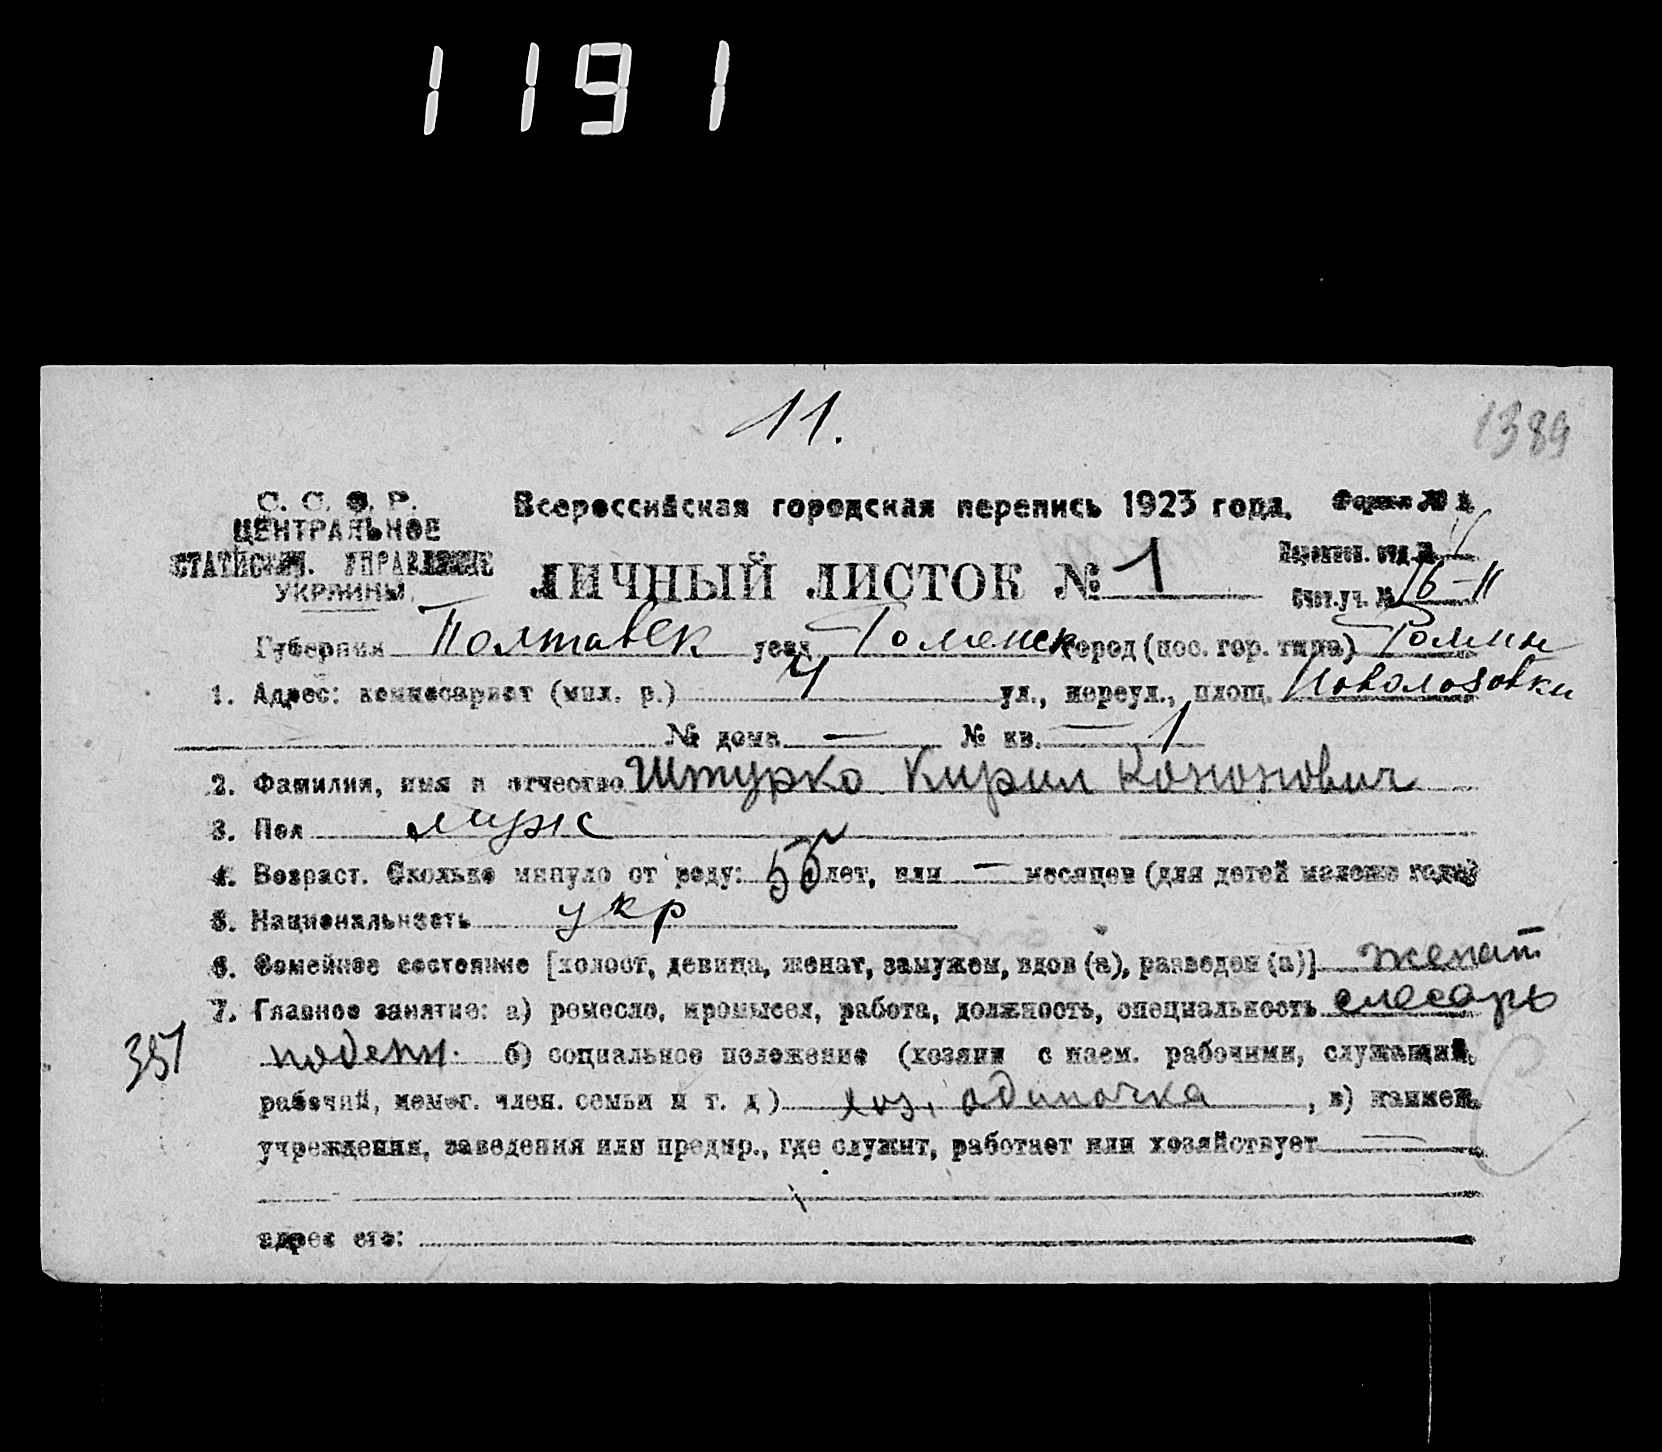 1191
11.
1389
С. С. Ф. Р.
ЦЕНТРАЛЬНОЕ
СТАТИСТИЧ. УПРАВЛЕНИЕ
УКРАИНЫ
Всероссийская городская перепись 1923 года. Форма № 1.
ЛИЧНЫЙ ЛИСТОК № 1
Переписн. отд. №
Счет. уч. № 16-11
Губерния Полтавск уезд Роменск город (пос. гор. типа) Ромны
1. Адрес: комиссариат (мил. р.) 4 ул., переул., площ.
№ дома — № кв. 1
2. Фамилия, имя и отчество Штурко Кирил Кононович
3. Пол муж
4. Возраст. Сколько минуло от роду: 55 лет, или — месяцев (для детей моложе года)
5. Национальность укр
6. Семейное состояние [холост, девица, женат, замужем, вдов (а), разведен (а)] женат
7. Главное занятие: а) ремесло, промысел, работа, должность, специальность слесарь
351
поденн. б) социальное положение (хозяин с наем. рабочими, служащий,
рабочий, помог. член. семьи и т. д) хоз. одиночка, в) наимен.
учреждения, заведения или предпр., где служит, работает или хозяйствует —
адрес его: